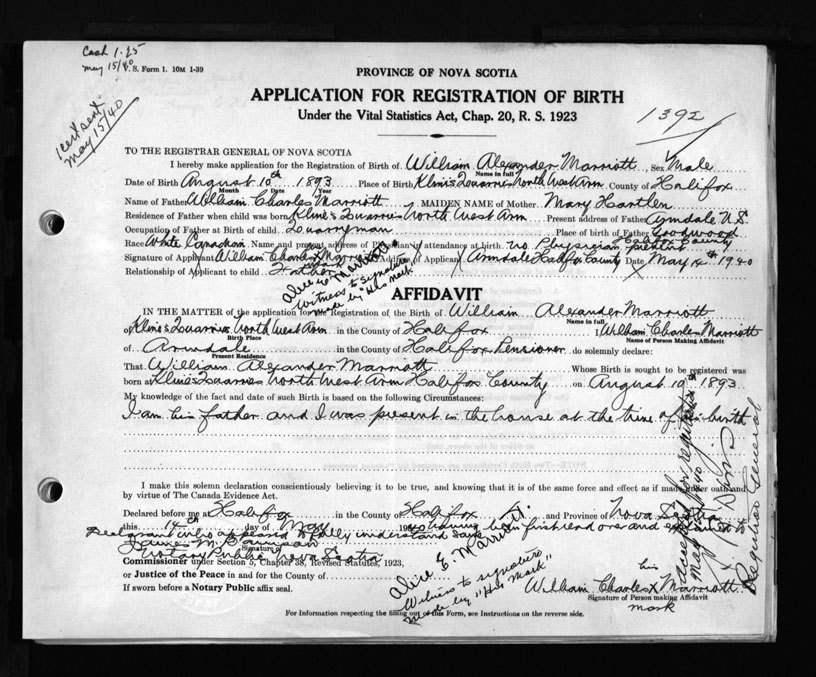 Cash 1.25
May 15/40
V. S. Form 1. 10M 1-39
1 cert sent
May 15/40
PROVINCE OF NOVA SCOTIA
APPLICATION FOR REGISTRATION OF BIRTH
Under the Vital Statistics Act, Chap. 20, R. S. 1923
1392
TO THE REGISTRAR GENERAL OF NOVA SCOTIA
I hereby make application for the Registration of Birth of William Alexander Marriott Sex Male
Name in full
Date of Birth August 10th 1893 Place of Birth Kline's Quarries North West Arm County of Halifax
Month Date Year
Name of Father William Charles Marriott MAIDEN NAME of Mother Mary Hartlen
Residence of Father when child was born Kline's Quarries North West Arm Present address of Father Armdale N.S.
Occupation of Father at Birth of child Quarryman Place of birth of Father Goodwood
Halifax County
Race White Canadian Name and present address of Physician in attendance at birth no Physician
Signature of Applicant William Charles X Marriott Address of Applicant Armdale Halifax County Date May 14th 1940
his mark
Relationship of Applicant to child Father
Alice E. Marriott
Witness to signature
made by "His Mark"
AFFIDAVIT
IN THE MATTER of the application for the Registration of the Birth of William Alexander Marriott
Name in full
of Kline's Quarries North West Arm in the County of Halifax I, William Charles Marriott
Birth Place Name of Person Making Affidavit
of Armdale in the County of Halifax Pensioner do solemnly declare:
Present Residence
That William Alexander Marriott Whose Birth is sought to be registered was
born at Kline's Quarries North West Arm Halifax County on August 10th 1893
My knowledge of the fact and date of such Birth is based on the following Circumstances:
I am his father and I was present in the house at the time of his birth
I make this solemn declaration conscientiously believing it to be true, and knowing that it is of the same force and effect as if made under oath and
by virtue of The Canada Evidence Act.
Declared before me at Halifax in the County of Halifax and Province of Nova Scotia
this 14th day of May 1940 having been first read over and explained to
Declarant who appeared to fully understand same
Signature of
Notary Public Nova Scotia
Commissioner under Section 5, Chapter 38, Revised Statutes, 1923,
or Justice of the Peace in and for the County of
If sworn before a Notary Public affix seal.
Alice E. Marriott
Witness to signature
made by "His Mark"
his
William Charles X Marriott
Signature of Person making Affidavit
mark
Accepted for registration
May 15, 1940
Registrar General
For Information respecting the filling out of this Form, see Instructions on the reverse side.